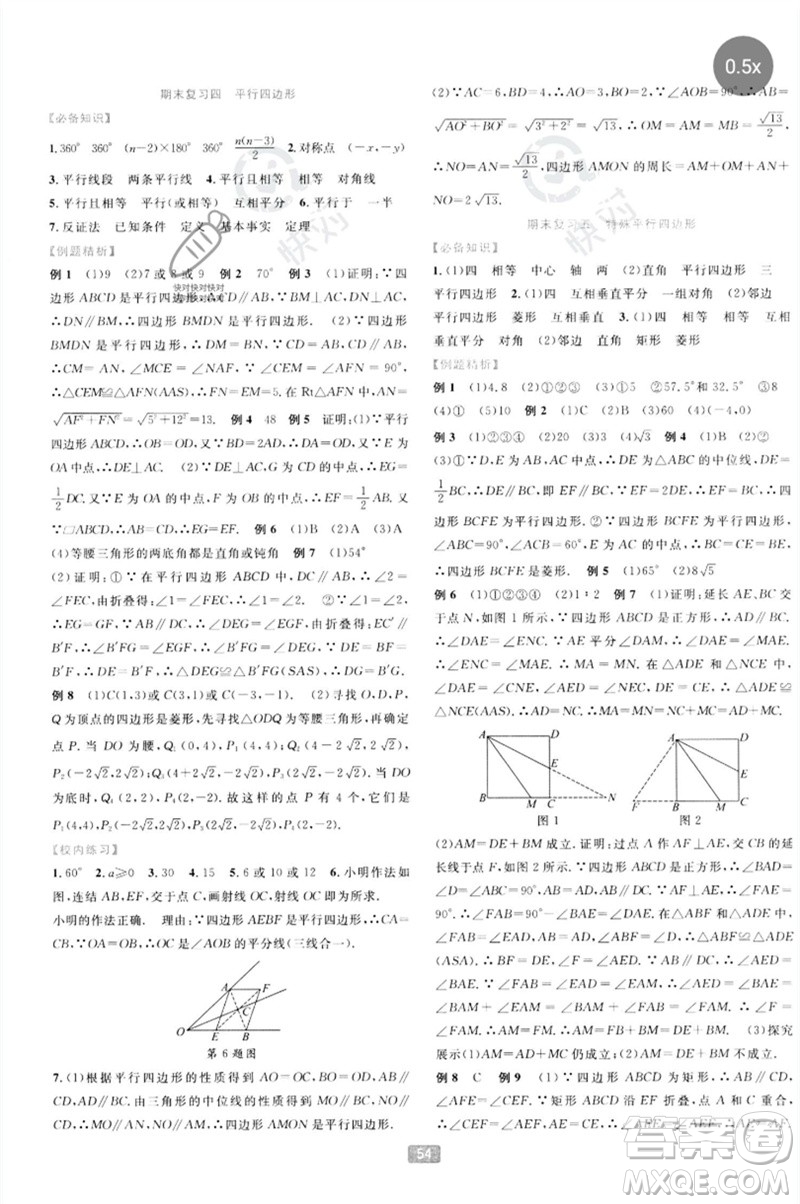 期末复习四 平行四边形
【必备知识】
1.360° 360° (n-2)×180° 360° n(n-3)/2 2.对称点 (-x,-y)
3.平行线段 两条平行线 4.平行且相等 相等 对角线
5.平行且相等 平行(或相等) 互相平分 6.平行于 一半
7.反证法 已知条件 定义 基本事实 定理
【例题精析】
例1 (1)9 (2)7或8或9 例2 70° 例3 (1)证明:∵四
边形ABCD是平行四边形,∴CD∥AB,∵BM⊥AC,DN⊥AC,
∴DN∥BM,∴四边形BMDN是平行四边形. (2)∵四边形
BMDN是平行四边形,∴DN=BM,∵CD=AB,CD∥AB,
∴CM=AN,∠MCE=∠NAF,∵∠CEM=∠AFN=90°,
∴△CEM≌△AFN(AAS),∴FN=EM=5,在Rt△AFN中,AN=
√(AF²+FN²)=√(5²+12²)=13. 例4 48 例5 证明:(1)∵平行
四边形ABCD,∴OB=OD,又∵BD=2AD,∴AD=OD,又∵E为
OA中点,∴DE⊥AC. (2)∵DE⊥AC,G为CD中点,∴EG=
1/2 DC.又∵E为OA的中点,F为OB的中点,∴EF=1/2 AB,又
∵□ABCD,∴CD=AB,∴EG=EF. 例6 (1)B (2)A (3)A
(4)等腰三角形的两底都是直角或钝角 例7 (1)54°
(2)证明:①∵在平行四边形ABCD中,DC∥AB,∴∠BFE=
∠FEC,由折叠得:∠FEC=∠FEB',∴∠BFE=∠FEB',
∴B'E=B'F. ②∵EG∥AB,∴∠DEG=∠EB'F,∵EC'∥
B'F,∴∠B'FG=∠EGF,∵EG∥AB,∴∠BFG=∠EGF,
∴∠B'FG=∠BFG,∴∠DEG=∠BFG,由折叠得:BF=
B'F,∵B'E=B'F,∴B'E=BF,∵DE=B'E,∴DE=BF=
B'F,∴△DEG≌△BFG≌△B'FG(SAS),∴DG=B'G.
例8 (1)C(1,3)或C(5,3)或C(-3,-1). (2)寻找以O,D,P,
Q为顶点的四边形是菱形,先寻找△ODQ为等腰三角形,再求P
点.当DO为腰,Q₁(0,4),P₁(4,4),Q₂(-2√2,2√2),
P₂(-2√2,2√2-4),Q₃(2√2,-2√2),P₃(2√2,4-2√2).当DO
为底时,Q₄(-2,2),P₄(2,2).故这样的点P有4个,P₁(4,4),
P₂(-2√2,2√2-4),P₃(2√2,4-2√2),P₄(2,2).
【校内练习】
1.60° 2.a⩾0 3.30 4.15 5.6或10或12 6.小明作法如
图,连结AB,EF,交于点C,画射线OC即为所求.
小明的作法正确. 理由:∵四边形AEBF是平行四边形,∴AC=
BC,∵OA=OB,∴OC是∠AOB的平分线(三线合一).
A F
C
O E B
第6题图
7.(1)根据平行四边形的性质得到AO=OC,BO=DO,AB∥
CD,根据三角形的中位线的性质得到OM∥AB∥CD,ON∥
AB∥CD,∴MO∥AN,NO∥AM,∴四边形AMON是平行四
边形.
(2)∵AC=6,BD=4,∴AO=3,BO=2,∵AC⊥BD,∴AB=
√(AO²+BO²)=√(3²+2²)=√13,∴OM=AM=MB=√13/2,
∴NO=AN=√13/2,四边形AMON的周长=AM+OM+AN+
NO=2√13.
期末复习五 特殊平行四边形
【必备知识】
1.(1)四 相等 中心 轴 两 (2)直角 平行四边形 三
平行四边形 2.(1)四 互相垂直平分 一组对角 (2)邻边
平行四边形 菱形 互相垂直 3.(1)相等 直角 互相垂直
平分 对角 (2)邻边 直角 矩形 菱形
【例题精析】
例1 (1)4.8 (2)12.5 (3)①5 ②57.5°和32.5° ③8
(4)① (5)10 例2 (1)2 (2)16 (3)60 (4)(-4,0)
例3 (1)①②③④ (2)20 (3)4 (4)√3 例4 (1)② (2)②
(3)①∵D,E分别是AB,AC的中点,∴DE是△ABC的中位线,∴DE=
1/2 BC,DE∥BC,∵DF=DE,∴EF=2DE=BC,EF∥BC,∴四
边形BCFE为平行四边形.②∵四边形BCFE为平行四边形,
∠ABC=90°,∠ACB=60°,∴BC=1/2 AC=CE=BE,
∴四边形BCFE是菱形. 例5 (1)65° (2)8√5
例6 (1)①②③④ (2)1∶2 例7 (1)证明:延长AE,BC交
于点N,如图1所示,∵四边形ABCD是正方形,∴AD∥BC,
∴∠DAE=∠ENC.∵AE平分∠DAM,∴∠DAE=∠MAE,
∴∠ENC=∠MAE.∴MA=MN.在△ADE和△NCE中,
∠DAE=∠CNE,∠AED=∠NEC,DE=CE,∴△ADE
≌△NCE(AAS).∴AD=NC.∴MA=MN=NC+MC=AD+MC.
A D
E
B M C N
图1
A D
E
F B M C
图2
(2)AM=DE+BM成立.证明:过点A作AF⊥AE,交CB的延
长线于点F,如图2所示.∵四边形ABCD是正方形,∴∠BAD=
∠D=∠ABC=90°,AB=AD,AB∥DC,∵AF⊥AE,∴∠FAE=
90°,∴∠FAB=90°-∠BAE=∠DAE.在△ABF和△ADE中,
∠FAB=∠EAD,AB=AD,∠ABF=∠D=90°,∴△ABF≌△ADE
(ASA).∴BF=DE,∠F=∠AED.∵AB∥DC,∴∠AED=
∠BAE.∵∠FAB=∠EAD=∠EAM,∴∠AED=∠BAE=
∠BAM+∠EAM=∠BAM+∠FAB=∠FAM,∴∠F=
∠FAM,∴AM=FM,∴AM=FB+BM=DE+BM.(3)探究
展示(1)中的结论AM=AD+MC仍成立;(2)中的结论不成立.
例8 C 例9 (1)证明:∵四边形ABCD为矩形,∴AD∥BC,
∴∠AFE=∠FEC,∵矩形沿EF折叠,点A和C重合,
54
0.5x
快对
答案圈
MXQE.COM